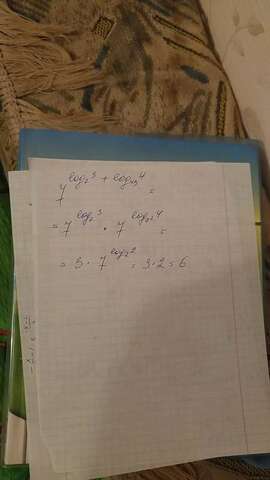 7^log₇3 + log₄₉4 =
= 7^log₇3 · 7^log₇²4 =
= 3 · 7^log₇2 = 3 · 2 = 6